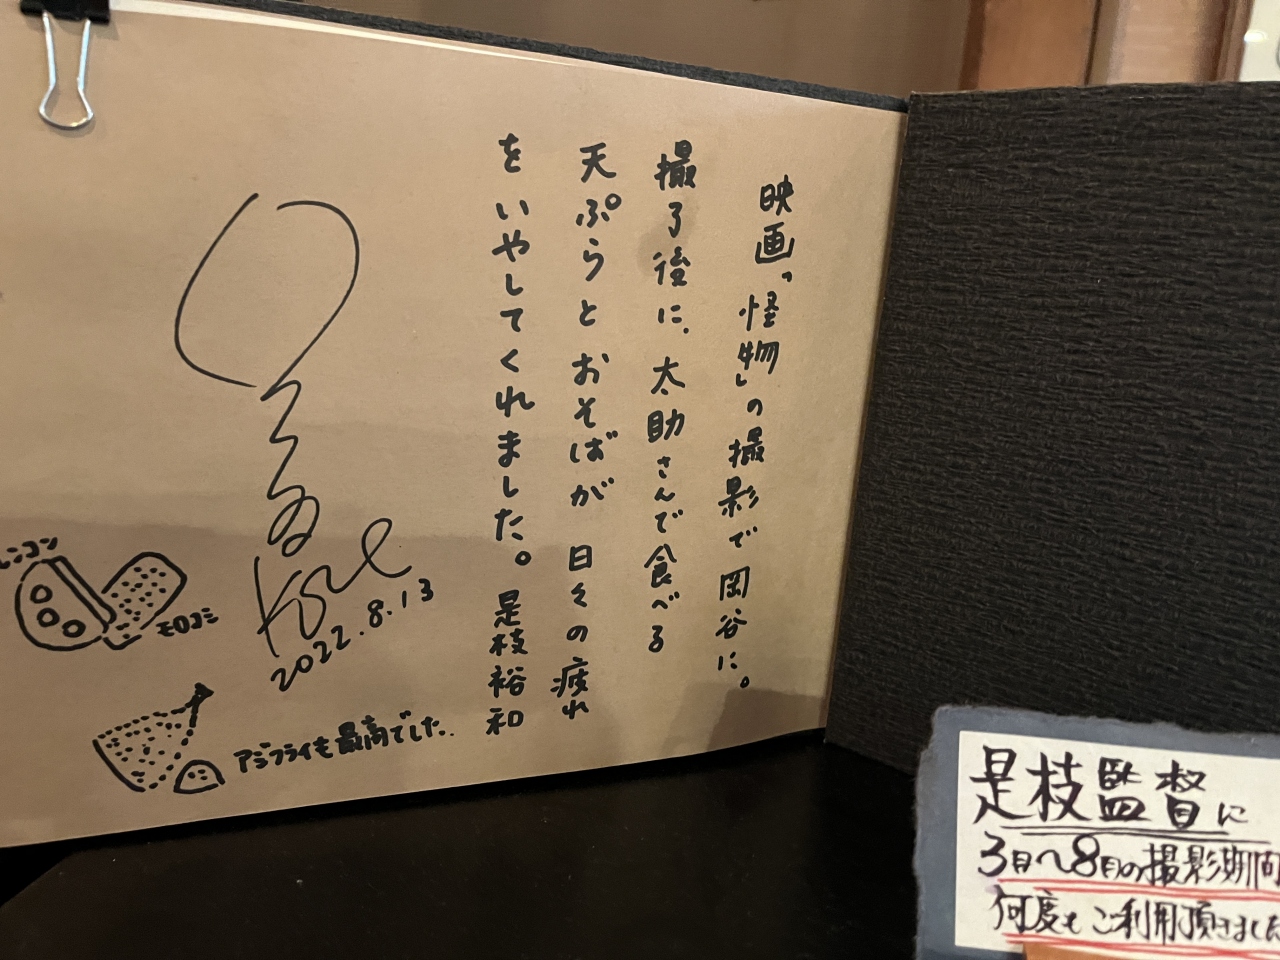 映画「怪物」の撮影で岡谷に。
撮了後に、太助さんで食べる
天ぷらとおそばが 日々の疲れ
をいやしてくれました。是枝裕和
2022.8.13
レンコン
モロコシ
アジフライも最高でした.
是枝監督に
3月〜8月の撮影期間
何度もご利用頂きました